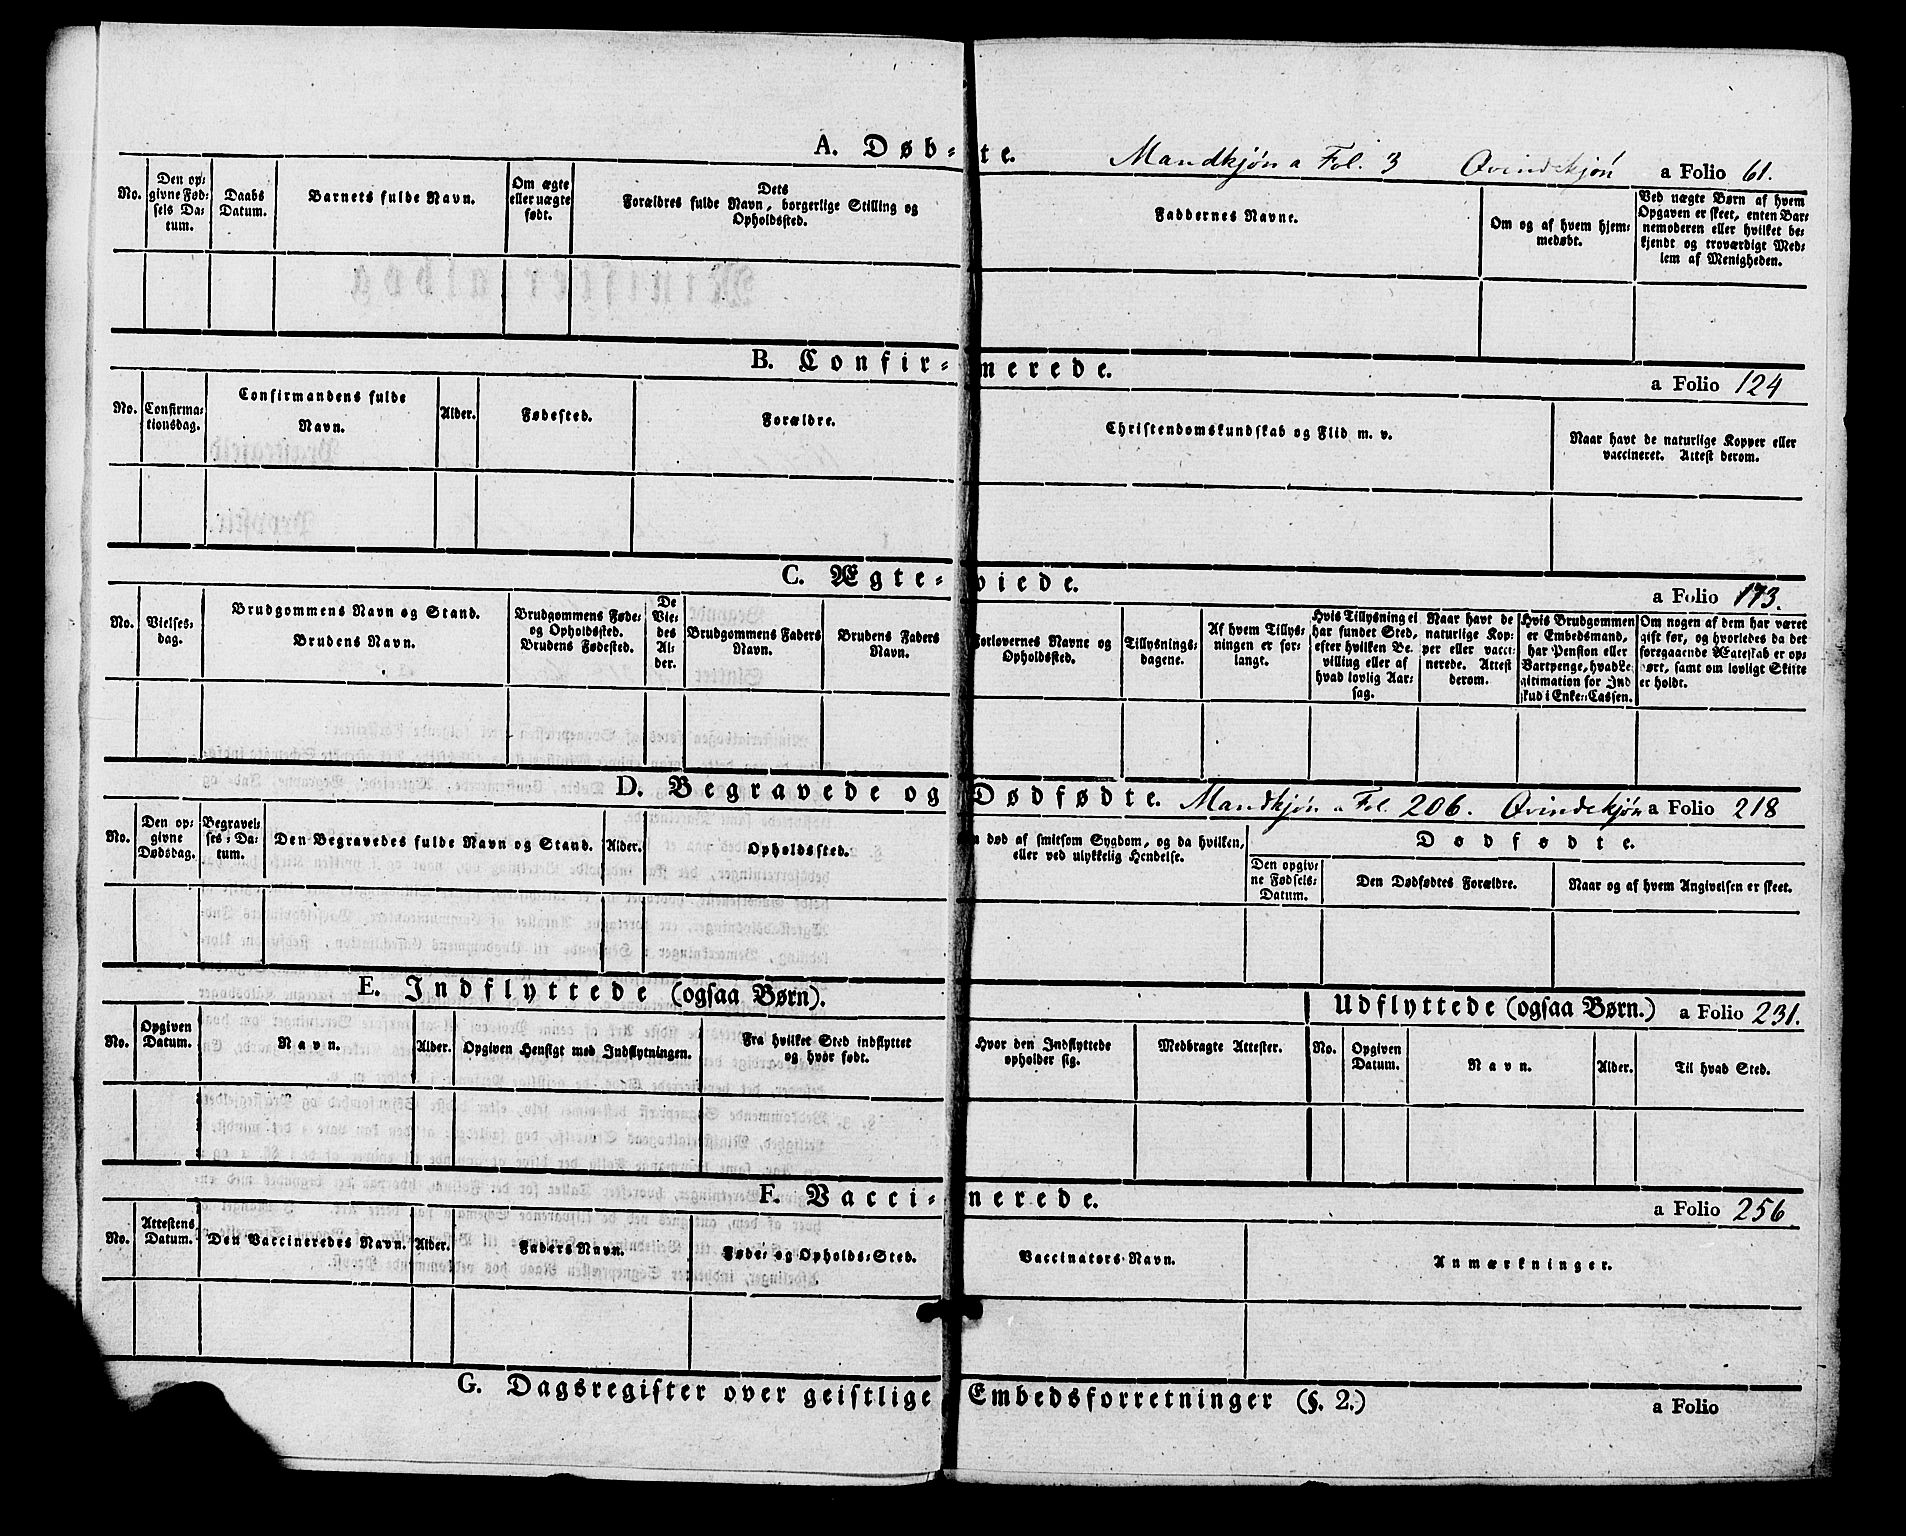 A. Døbte. Mandkjøn a Fol. 3 Qvindekjøn a Folio 61.
No.
Den op-
givne Fød-
sels Da-
tum.
Daabs
Datum.
Barnets fulde Navn.
Om ægte
eller uægte
født.
Dets
Forældres fulde Navn, borgerlige Stilling og
Opholdssted.
Faddernes Navne.
Om og af hvem hjem-
medøbt.
Ved uægte Børn af hvem
Opgaven er skeet, enten Bar-
nemoderen eller hvilket be-
kjendt og troværdigt Med-
lem af Menigheden.
B. Confirmerede. a Folio 124
No.
Confirma-
tionsdag.
Confirmandens fulde
Navn.
Alder.
Fødested.
Forældre.
Christendomskundskab og Flid m. v.
Naar havt de naturlige Kopper eller
vaccineret. Attest derom.
C. Ægteviede. a Folio 173.
No.
Vielses-
dag.
Brudgommens Navn og Stand.
Brudens Navn.
Brudgommens Føde-
og Opholdssted.
Brudens Fødested.
De
Vie-
des
Al-
der.
Brudgommens Faders
Navn.
Brudens Faders
Navn.
Forlovernes Navne og
Opholdssted.
Tillysnings-
dagene.
Af hvem Tillys-
ningen er for-
langt.
Hvis Tillysning ei
har fundet Sted,
efter hvilken Be-
villing eller af
hvad lovlig Aar-
sag.
Naar havt de
naturlige Kop-
per eller vacci-
nerede. Attest
derom.
Hvis Brudgommen
er Embedsmand,
har Pension eller
Vartpenge, hvad Le-
gitimation for Ind
skud i Enke-Cassen.
Om nogen af dem har været
gift før, og hvorledes da det
foregaaende Ægteskab er op-
hørt, samt om lovligt Skifte
er holdt.
D. Begravede og Dødfødte. Mandkjøn a Fol. 206. Qvindekjøn a Folio 218
No.
Den op-
givne
Dødsdag.
Begravel-
ses-Da-
tum.
Den Begravedes fulde Navn og Stand.
Alder.
Opholdssted.
død af smitsom Sygdom, og da hvilken,
eller ved ulykkelig Hendelse.
Dødfødte.
Den opgiv-
ne Fødsels-
Datum.
Den Dødfødtes Forældre.
Naar og af hvem Angivelsen er skeet.
E. Indflyttede (ogsaa Børn). Udflyttede (ogsaa Børn.) a Folio 231.
No.
Opgiven
Datum.
Navn.
Alder.
Opgiven Hensigt med Indflytningen.
Fra hvilket Sted indflyttet
og hvor født.
Hvor den Indflyttede
opholder sig.
Medbragte Attester.
No.
Opgiven
Datum.
Navn.
Alder.
Til hvad Sted.
F. Vaccinerede. a Folio 256
No.
Attestens
Datum.
Den Vaccineredes Navn.
Alder.
Faders Navn.
Føde- og Opholds-Sted.
Vaccinators Navn.
Anmærkninger.
G. Dagsregister over geistlige Embedsforretninger (§. 2.) a Folio